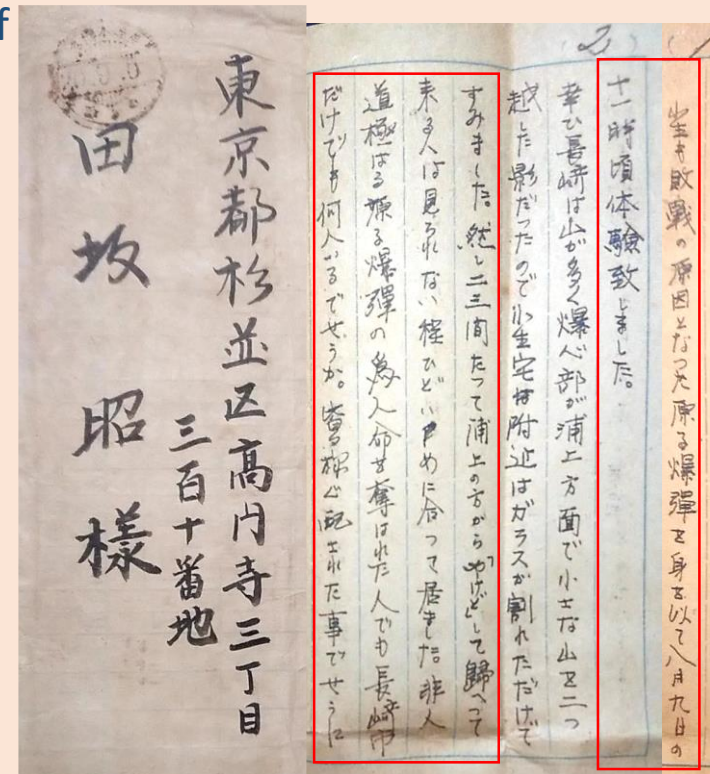 f
東京都杉並区高円寺三丁目
三百十番地
田坂 昭 様
小生も敗戦の原因となつた原子爆彈を身を以て八月九日の
(2)
十一時頃体驗致しました。
幸ひ長崎は山が多く爆心部が浦上方面で小さな山を二つ
越した影だつたので小生宅附近はガラスが割れただけで
すみました。然し二三間たつて浦上の方から「やけど」して歸へつて
来る人は見られない程ひどいめに合つて居ました。非人
道極はる原子爆彈の為人命を奪はれた人でも長崎市
だけでも何人ゐるでせうか。皆様心配された事でせうに